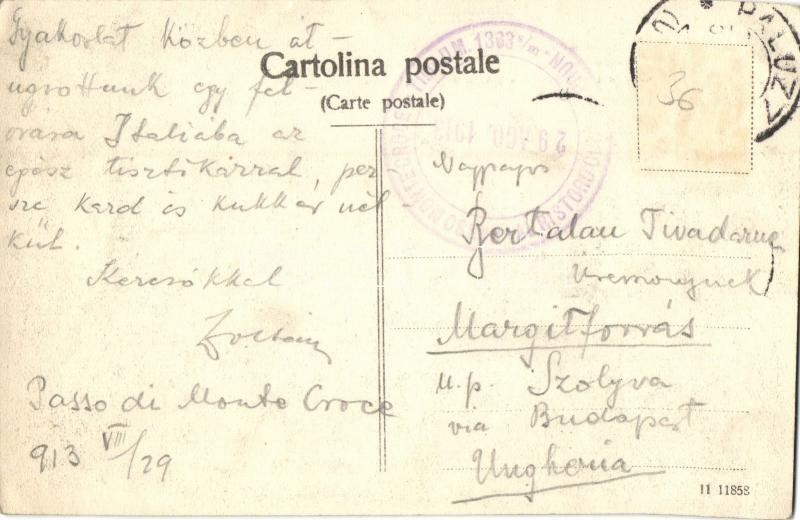 Cartolina postale
(Carte postale)
Gyakorlat közben át-
ugrottunk egy fél-
órára Itáliába az
egész tisztikarral, per
sze kard és kukker nél
kül.
Kezcsókkal
Zoltán
Passo di Monte Croce
913 VIII/29
36
PALUZZA
29 AGO. 1913
M. 1363
MONTE CROCE
RISTORO
Nagyságos
Bertalan Tivadarné
úrasszonynak
Margitforrás
u.p. Szolyva
via Budapest
Ungheria
11 11858